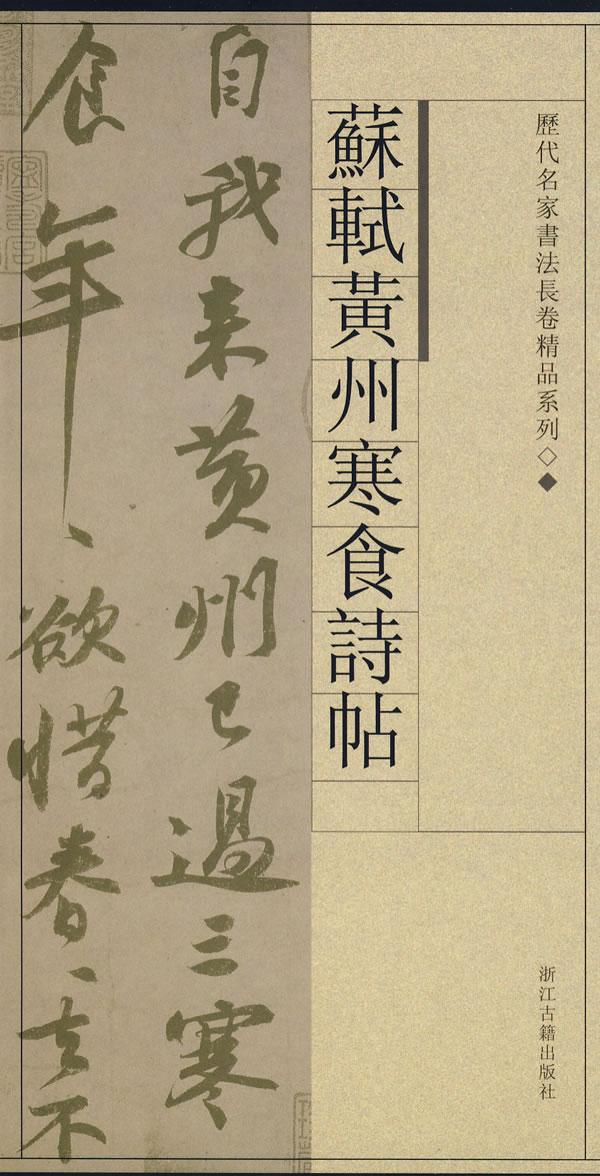 歷代名家書法長卷精品系列◇◆
蘇軾黃州寒食詩帖
浙江古籍出版社
自我来黄州已過三寒
食年、欲惜春、去不